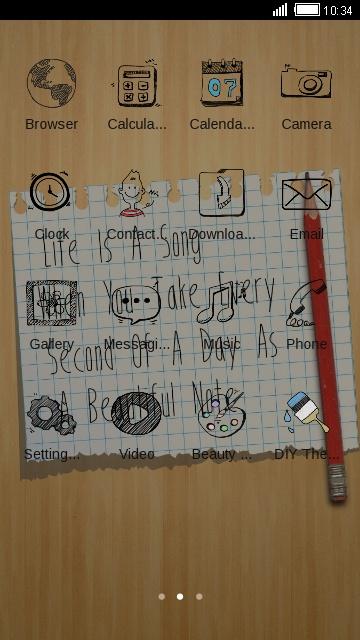 10:34
07
Browser Calcula... Calenda... Camera
Clock Contact... Downloa... Email
Life Is A Song
Gallery Messagi... Music Phone
When You Take Every
Second Of A Day As
A Beautiful Note
Setting... Video Beauty ... DIY The...